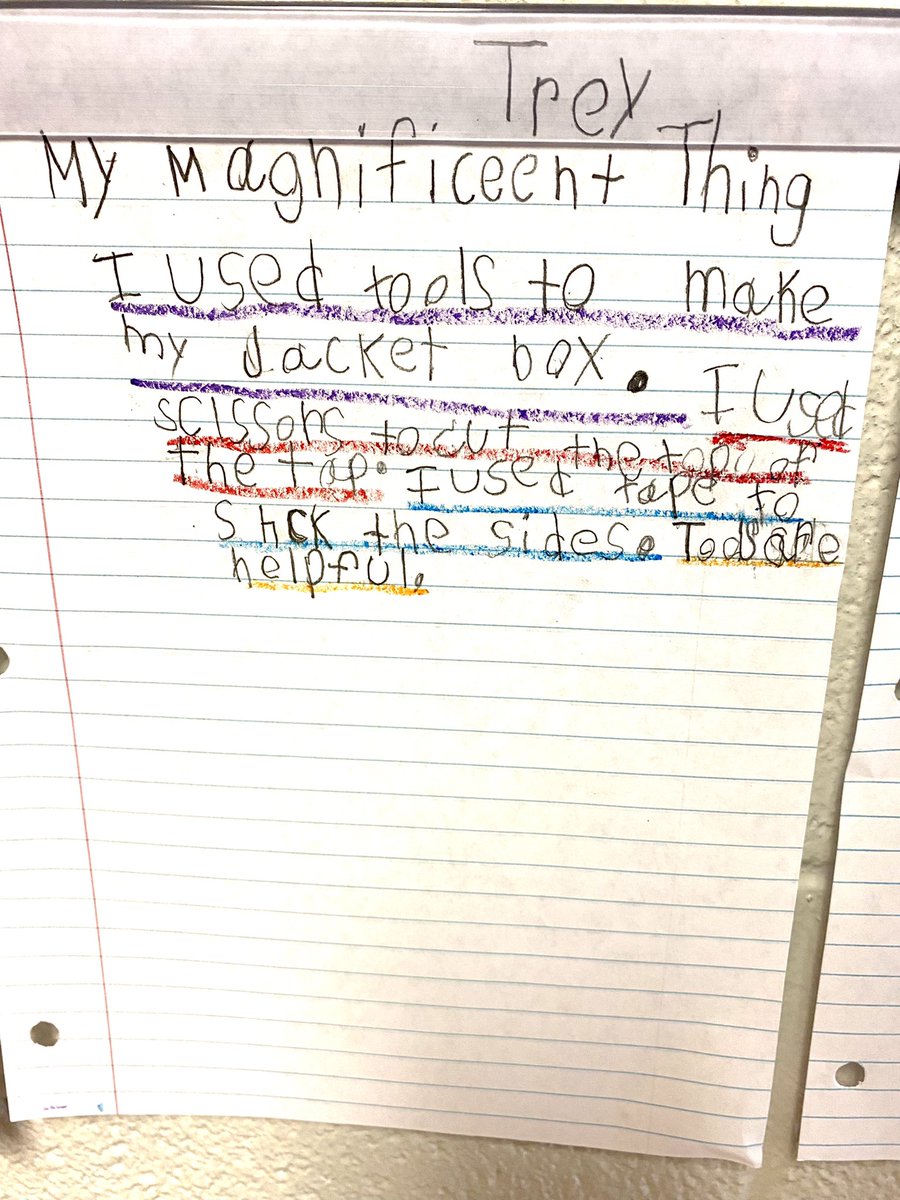 Trex
My Magnificeent Thing
I used tools to make
my Jacket box. I used
scissors to cut the top of
the tap. I used tape to
stick the sides. Tools are
helpful.